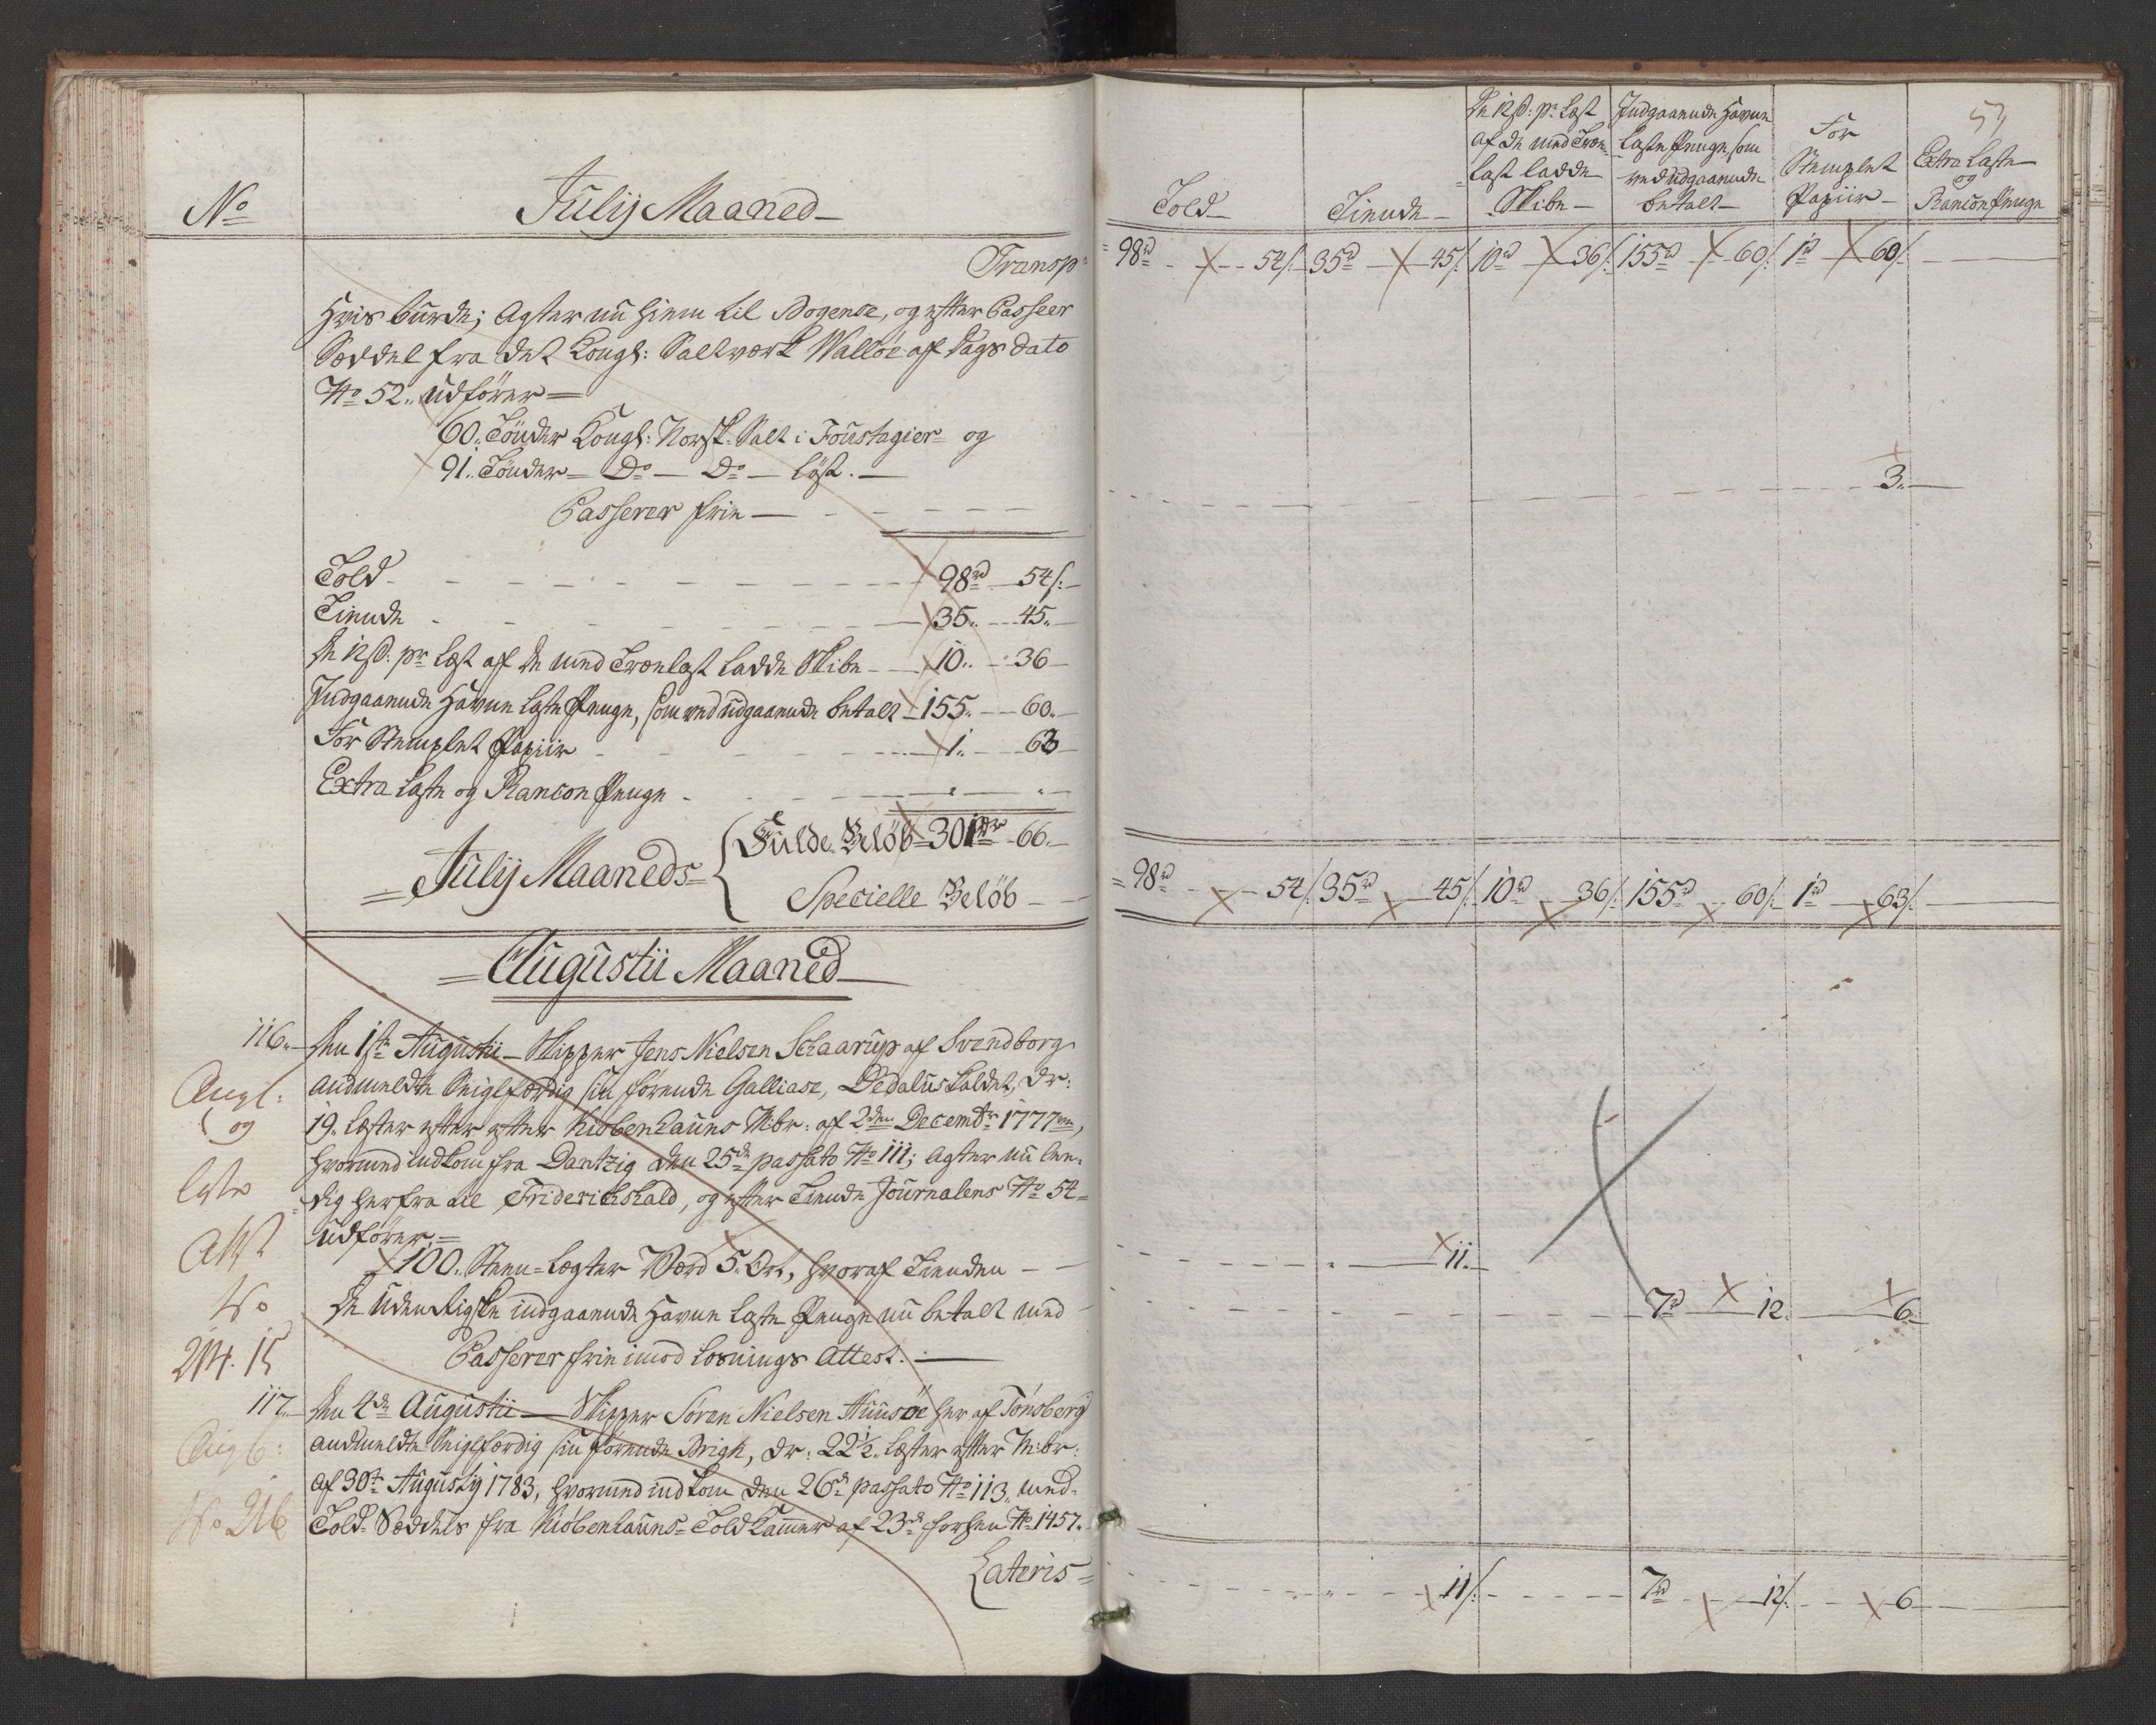 No
Julij Maaned
Transp:
Hvis burde; Agter nu hiem til Bogense, og efter Passeer
Seddel fra det Kongl: Saltværk Walløe af Dags dato
No 52. udfører
60. Tønder Kongl: Norsk Salt i Foustagier og
91. Tønder Do Do løst.
Passerer frie
Told 98rd 54s:
Tiende 35. 45.
De 12s: pr Læst af de med Trælast ladde Skibe 10. 36
Indgaaende Havne Læste Penge, som ved udgaaende betalt 155. 60.
For Stemplet Papiir 1. 63
Extra Læste og Rancon Penge
Julij Maaneds
Fulde Beløb 301rdr 66.
Specielle Beløb
Augustii Maaned
116. Den 1ste Augustii Skipper Jens Nielsen Schaarup af Svendborg
andmeldte Seiglfærdig sin førende Galliase, Dedalus kaldet, dr:
19. Læster efter efter Kiøbenhauns M:br: af 2den Decembr 1777ve,
hvormed indkom fra Dantzig den 25de passato No 111; Agter nu leedig
herfra til Friderichshald, og efter Tiende Journalens No 54
udfører
100. Steen-Lægter Værd 5. Ort, hvoraf Tienden
De Udenrigske indgaaende Havne Læste Penge nu betalt med
Passerer frie imod Losnings Attest.
117. Den 4de Augustii Skipper Søren Nielsen Huusøe her af Tønsberg
andmeldte Seiglfærdig sin førende Brigh, dr: 22½. Læster efter M:br:
af 30te Augusty 1783, hvormed indkom den 26de passato No 113. med
Told-Seddels fra Kiøbenhauns Told Kamer af 23de forhen No 1457.
Lateris
Angl:
og
Læste
Att
No
214. 15
Angl:
No 216
57
Told
Tiende
De 12s: pr Læst
af de med Træ-
last ladde
Skibe
Indgaaende Havne
Læste Penge, som
ved udgaaende
betalt
For
Stemplet
Papiir
Extra Læste
og
Rancon Penge
98rd 54s: 35rd 45s: 10rd 36s: 155rd 60s: 1rd 60s:
3.
98rd 54s: 35rd 45s: 10rd 36s: 155rd 60s: 1rd 63s:
11.
7rd 12. 6
11s: 7rd 12s: 6